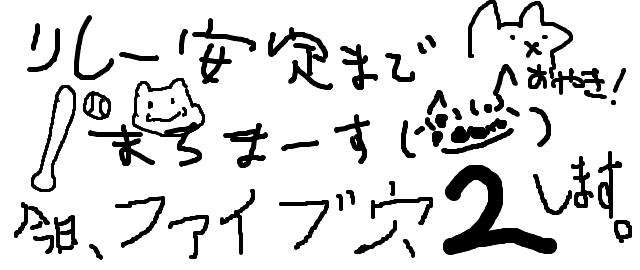 リレー安定まで
おやき!
まちまーす
今日、ファイブ穴2します。